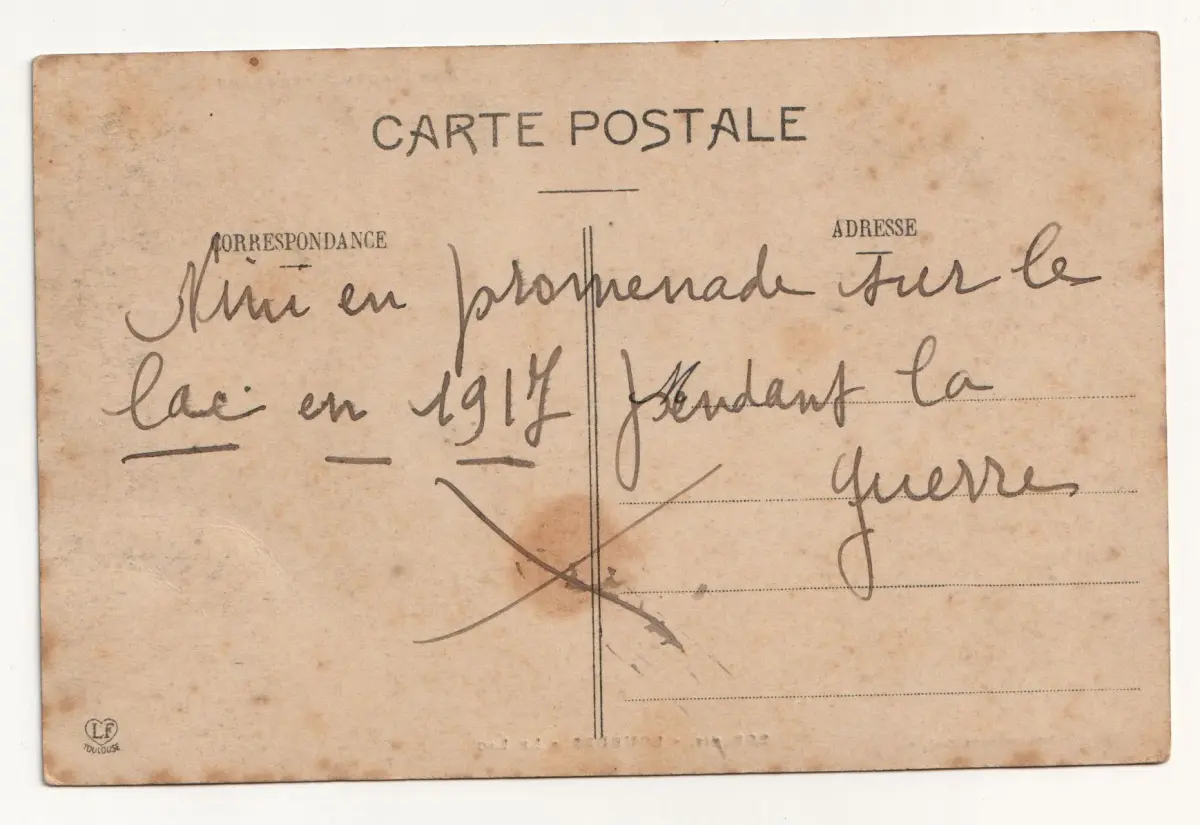 CARTE POSTALE
CORRESPONDANCE
ADRESSE
Nini en promenade sur le
lac en 1917 pendant la
guerre
LF
TOULOUSE